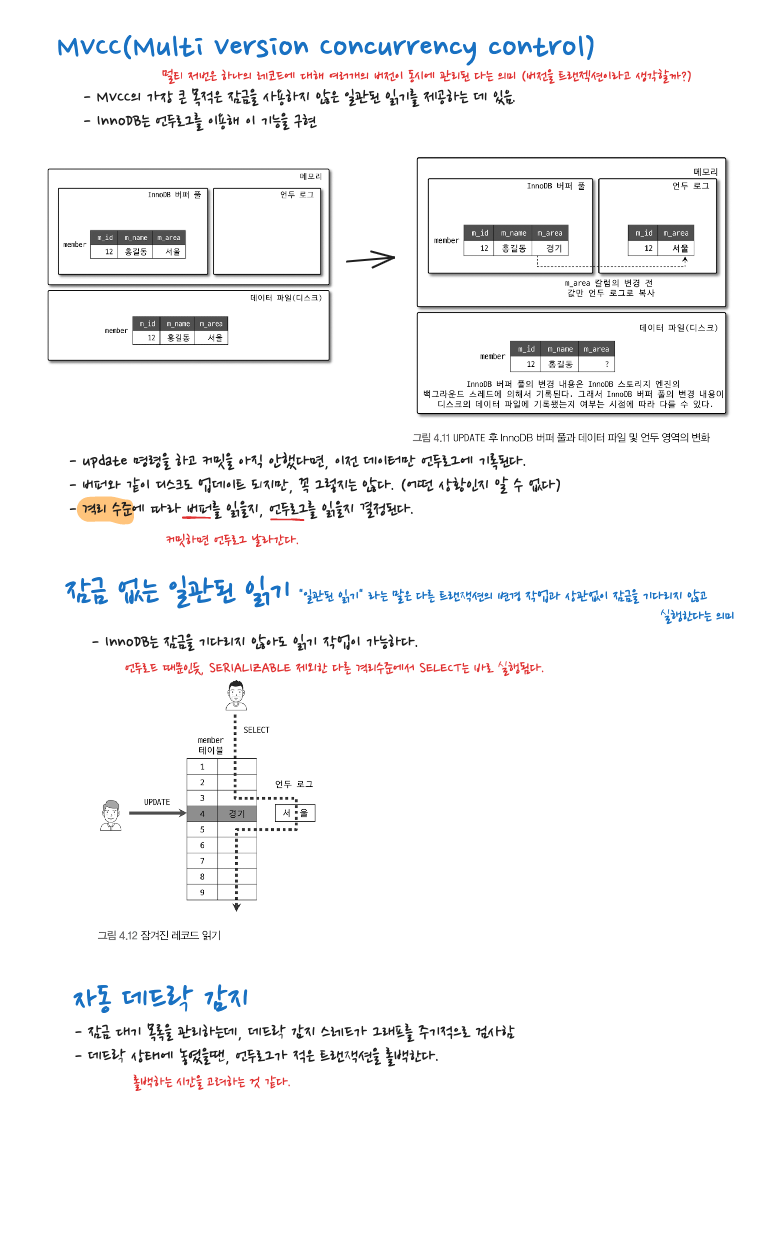 MVCC(Multi version concurrency control)
멀티 저번은 하나의 레코드에 대해 여러개의 버전이 동시에 관리된 다는 의미 (버전을 트랜젝션이라고 생각할까?)
- MVCC의 가장 큰 목적은 잠금을 사용하지 않은 일관된 읽기를 제공하는 데 있음.
- InnoDB는 언두로그를 이용해 이 기능을 구현
메모리
InnoDB 버퍼 풀
언두 로그
member
m_id m_name m_area
12 홍길동 서울
데이터 파일(디스크)
member
m_id m_name m_area
12 홍길동 서울
메모리
InnoDB 버퍼 풀
언두 로그
member
m_id m_name m_area
12 홍길동 경기
m_id m_area
12 서울
m_area 칼럼의 변경 전
값만 언두 로그로 복사
데이터 파일(디스크)
member
m_id m_name m_area
12 홍길동 ?
InnoDB 버퍼 풀의 변경 내용은 InnoDB 스토리지 엔진의
백그라운드 스레드에 의해서 기록된다. 그래서 InnoDB 버퍼 풀의 변경 내용이
디스크의 데이터 파일에 기록됐는지 여부는 시점에 따라 다를 수 있다.
그림 4.11 UPDATE 후 InnoDB 버퍼 풀과 데이터 파일 및 언두 영역의 변화
- update 명령을 하고 커밋을 아직 안했다면, 이전 데이터만 언두로그에 기록된다.
- 버퍼와 같이 디스크도 업데이트 되지만, 꼭 그렇지는 않다. (어떤 상황인지 알 수 없다)
- 격리 수준에 따라 버퍼를 읽을지, 언두로그를 읽을지 결정된다.
커밋하면 언두로그 날라간다.
잠금 없는 일관된 읽기
"일관된 읽기" 라는 말은 다른 트랜잭션의 변경 작업과 상관없이 잠금을 기다리지 않고
실행한다는 의미
- InnoDB는 잠금을 기다리지 않아도 읽기 작업이 가능하다.
언두로드 때문인듯, SERIALIZABLE 제외한 다른 격리수준에서 SELECT는 바로 실행됨다.
SELECT
member
테이블
1
2
3
언두 로그
UPDATE
4 경기
서울
5
6
7
8
9
그림 4.12 잠겨진 레코드 읽기
자동 데드락 감지
- 잠금 대기 목록을 관리하는데, 데드락 감지 스레드가 그래프를 주기적으로 검사함
- 데드락 상태에 놓였을땐, 언두로그가 적은 트랜잭션을 롤백한다.
롤백하는 시간을 고려하는 것 같다.